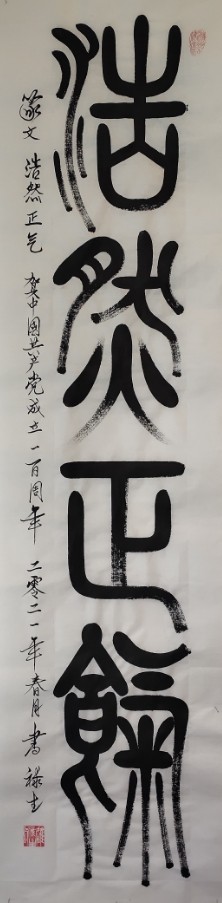 浩然正氣
篆文 浩然正气 贺中國共产党成立一百周年 二零二一年春月書 禄生